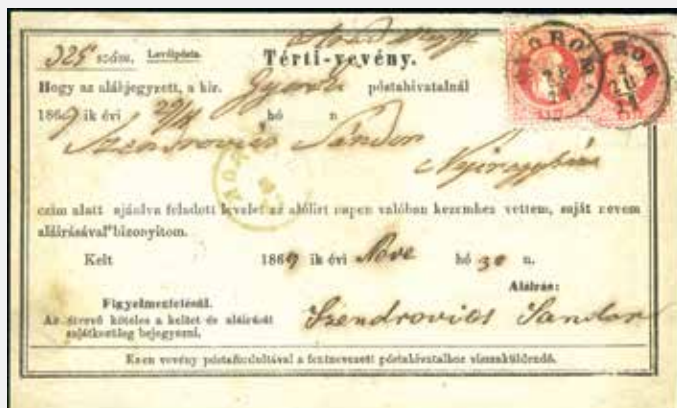 325 szám. Levélposta. Térti-vevény.
Hogy az alábjegyzett, a kir. póstahivatalnál
1869 ik évi 29/11 hó n
Szendrovics Sándor
czim alatt ajánlva feladott levelet az alólirt napon valóban kezemhez vettem, saját nevem
aláirásával bizonyitom.
Kelt 1869 ik évi Nove hó 30 n.
Aláirás:
Figyelmeztetésül.
Az átvevő köteles a keltet és aláirását
sajátkezüleg bejegyezni.
Szendrovics Sandor
Ezen vevény póstafordultával a fentnevezett póstahivatalhoz visszaküldendő.